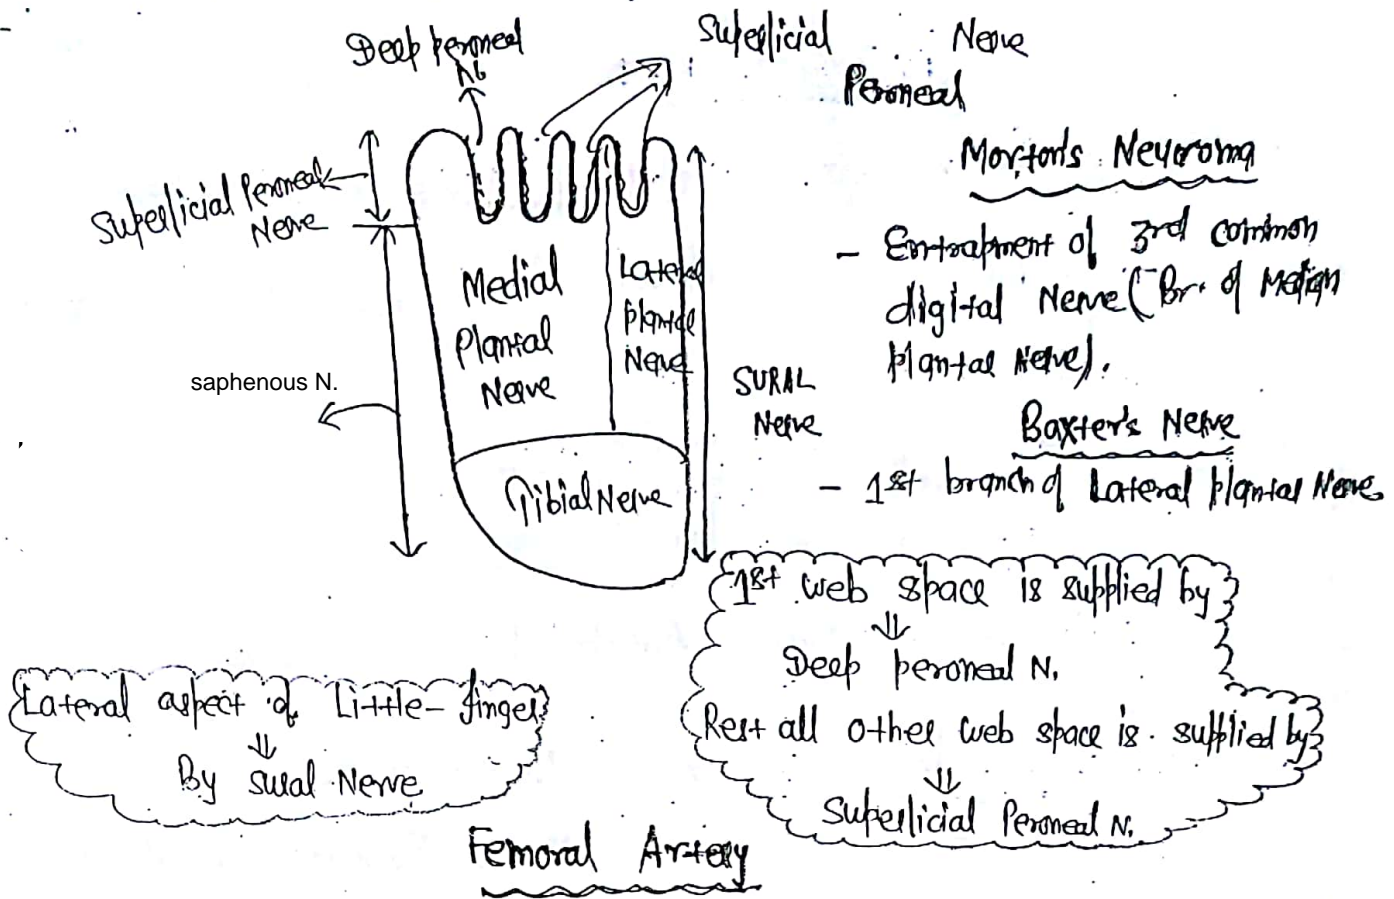 Deep peroneal
N.
Superficial Nerve
Peroneal
Superficial Peroneal
Nerve
Medial
Plantar
Nerve
Lateral
Plantar
Nerve
saphenous N.
SURAL
Nerve
Tibial Nerve
Morton's Neuroma
- Entrapment of 3rd common
digital Nerve (Br. of Median
plantar Nerve).
Baxter's Nerve
- 1st branch of Lateral plantar Nerve
1st web space is supplied by
⇓
Deep peroneal N.
Rest all other web space is supplied by
⇓
Superficial Peroneal N.
Lateral aspect of Little-finger
⇓
By sural Nerve
Femoral Artery